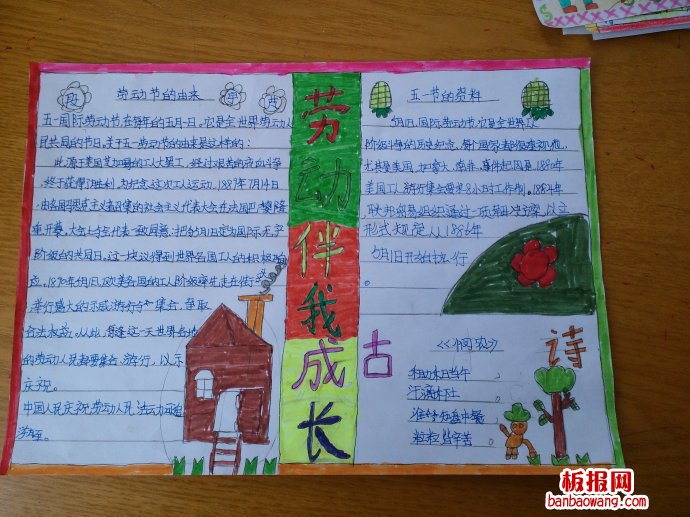 劳动节的由来
五一国际劳动节,在每年的五月一日,它是全世界劳动人
民共同的节日,关于五一劳动节的由来是这样的:
此源于美国芝加哥的工人大罢工,经过艰苦的流血斗争
终于获得了胜利,为纪念这次工人运动,1889年7月14日
由各国马克思主义者召集的社会主义代表大会在法国巴黎隆
重开幕,大会上与会代表一致同意:把5月1日定为国际无产
阶级的共同日,这一决议得到世界各国工人的积极响
应。1890年5月1日,欧美各国的工人阶级率先走在街头
举行盛大的示威游行与集会,争取
合法权益。从此,每逢这一天世界各地
的劳动人民都要集会、游行,以示
庆祝。
中国人民庆祝劳动人民
劳动伴我成长
五一节的资料
5月1日,国际劳动节,它是全世界工人
阶级斗争的历史纪念,每个国家都很重视他,
尤其是美国,加拿大,南非,事件起因是,1880年
美国工人游行集会要求8小时工作制。1884年,
形式规定从1886年
5月1日开始推行
。
古诗
《悯农》
汗滴禾下土
粒粒皆辛苦
板报网
banbaowang.com